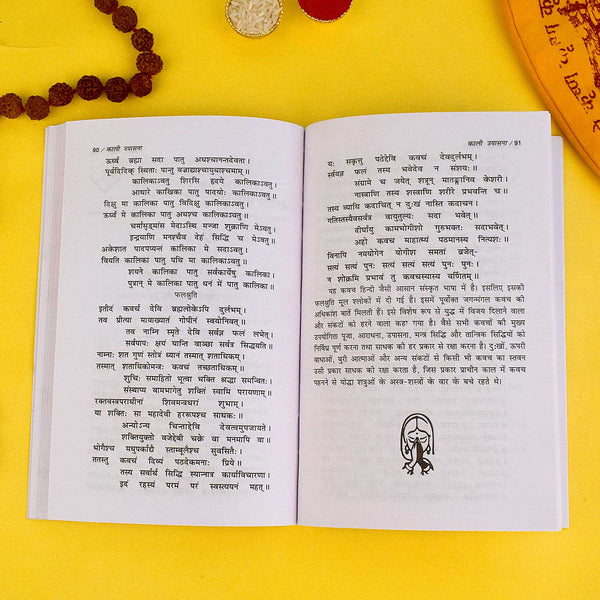 90 / काली उपासना
ऊर्ध्वं ब्रह्मा सदा पातु अधश्चानन्तदेवता।
पूर्वादिदिक् स्थिताः पान्तु वज्राद्याश्चायुधाश्चमाम्॥
कालिकाऽवतु शिरसि हृदये कालिकाऽवतु।
आधारे कालिका पातु पादयोः कालिकाऽवतु॥
दिक्षु मा कालिका पातु विदिक्षु कालिकाऽवतु।
ऊर्ध्वं मे कालिका पातु अधश्च कालिकाऽवतु॥
चर्मासृङ्मांस मेदाऽस्थि मज्जा शुक्राणि मेऽवतु।
इन्द्रयाणि मनश्चैव देहं सिद्धिं च मेऽवतु॥
आकेशात पादपर्यन्तं कालिका मे सदाऽवतु।
वियति कालिका पातु पथि मा कालिकाऽवतु॥
शयने कालिका पातु सर्वकार्येषु कालिका।
पुत्रान् मे कालिका पातु धनं मे पातु कालिका॥
फलश्रुति
इतीदं कवचं देवि ब्रह्मलोकेऽपि दुर्लभम्।
तव प्रीत्या मायाख्यातं गोपीनं स्वयोनिवत्॥
तव नाम्नि स्मृते देवि सर्वज्ञ फलं लभेत्।
सर्वपापः क्षयं यान्ति वाञ्छा सर्वत्र सिद्धयति॥
नाम्नाः शत गुणं स्तोत्रं ध्यानं तस्मात् शताधिकम्।
तस्मात् शताधिकोमन्त्रः कवचं तच्छताधिकम्॥
शुचिः समाहितो भूत्वा भक्ति श्रद्धा समन्वितः।
संस्थाप्य वामभागेतु शक्तिं स्वामि परायणाम्॥
रक्तवस्त्रपराधीनां शिवमन्त्रधरां शुभाम्।
या शक्तिः सा महादेवी हररूपश्च साधकः॥
अन्योऽन्य चिन्ताद्देवि देवत्वमुपजायते।
शक्तियुक्तो वजेद्देवी चक्रे वा मनमापि वा॥
भोगैश्च मधुपर्काद्यै स्ताम्बूलैश्च सुवासितैः।
ततस्तु कवचं दिव्यं पठदेकमनाः प्रिये॥
तस्य सर्वार्थ सिद्धि स्यान्नात्र कार्याविचारणा।
इदं रहस्यं परमं परं स्वस्त्ययनं महत्॥
काली उपासना / 91
यः सकृत्तु पठेद्देवि कवचं देवदुर्लभम्।
सर्वयज्ञ फलं तस्य भवेदेव न संशयः॥
संग्रामे च जयेत् शत्रून् मातङ्गानिव केशरी।
नास्त्राणि तस्य शस्त्राणि शरीरे प्रभवन्ति च॥
तस्य व्याधि कदाचित् न दुःखं नास्ति कदाचन।
गतिस्तस्यैवसर्वत्र वायुतुल्यः सदा भवेत्॥
दीर्घायु कामभोगीशो गुरुभक्तः सदाभवेत्।
अहो कवच माहात्म्यं पठमानस्य नित्यशः॥
विनापि नवयोगेन योगीश समतां व्रजेत-
सत्यं सत्यं पुनः सत्यं सत्यं पुनः पुनः।
न शोक्नोमि प्रभावं तु कवचस्यास्य वर्णितम्॥
यह कवच हिन्दी जैसी आसान संस्कृत भाषा में है। इसलिए इसकी
फलश्रुति मूल श्लोकों में दी गई है। इसमें पूर्वोक्त जगन्मंगल कवच की
अधिकांश बातें मिलती हैं। इसे विशेष रूप से युद्ध में विजय दिलाने वाला
और संकटों को हरने वाला कहा गया है। वैसे सभी कवचों की मुख्य
उपयोगिता पूजा, आराधना, उपासना, मन्त्र सिद्धि और तान्त्रिक सिद्धियों को
निर्विघ्न पूर्ण करना तथा साधक की हर प्रकार से रक्षा करना है। दुःखों, ऊपरी
बाधाओं, बुरी आत्माओं और अन्य संकटों से किसी भी कवच का स्तवन
उसी प्रकार साधक की रक्षा करता है, जिस प्रकार प्राचीन काल में कवच
पहनने से योद्धा शत्रुओं के अस्त्र-शस्त्रों के वार के बचे रहते थे।